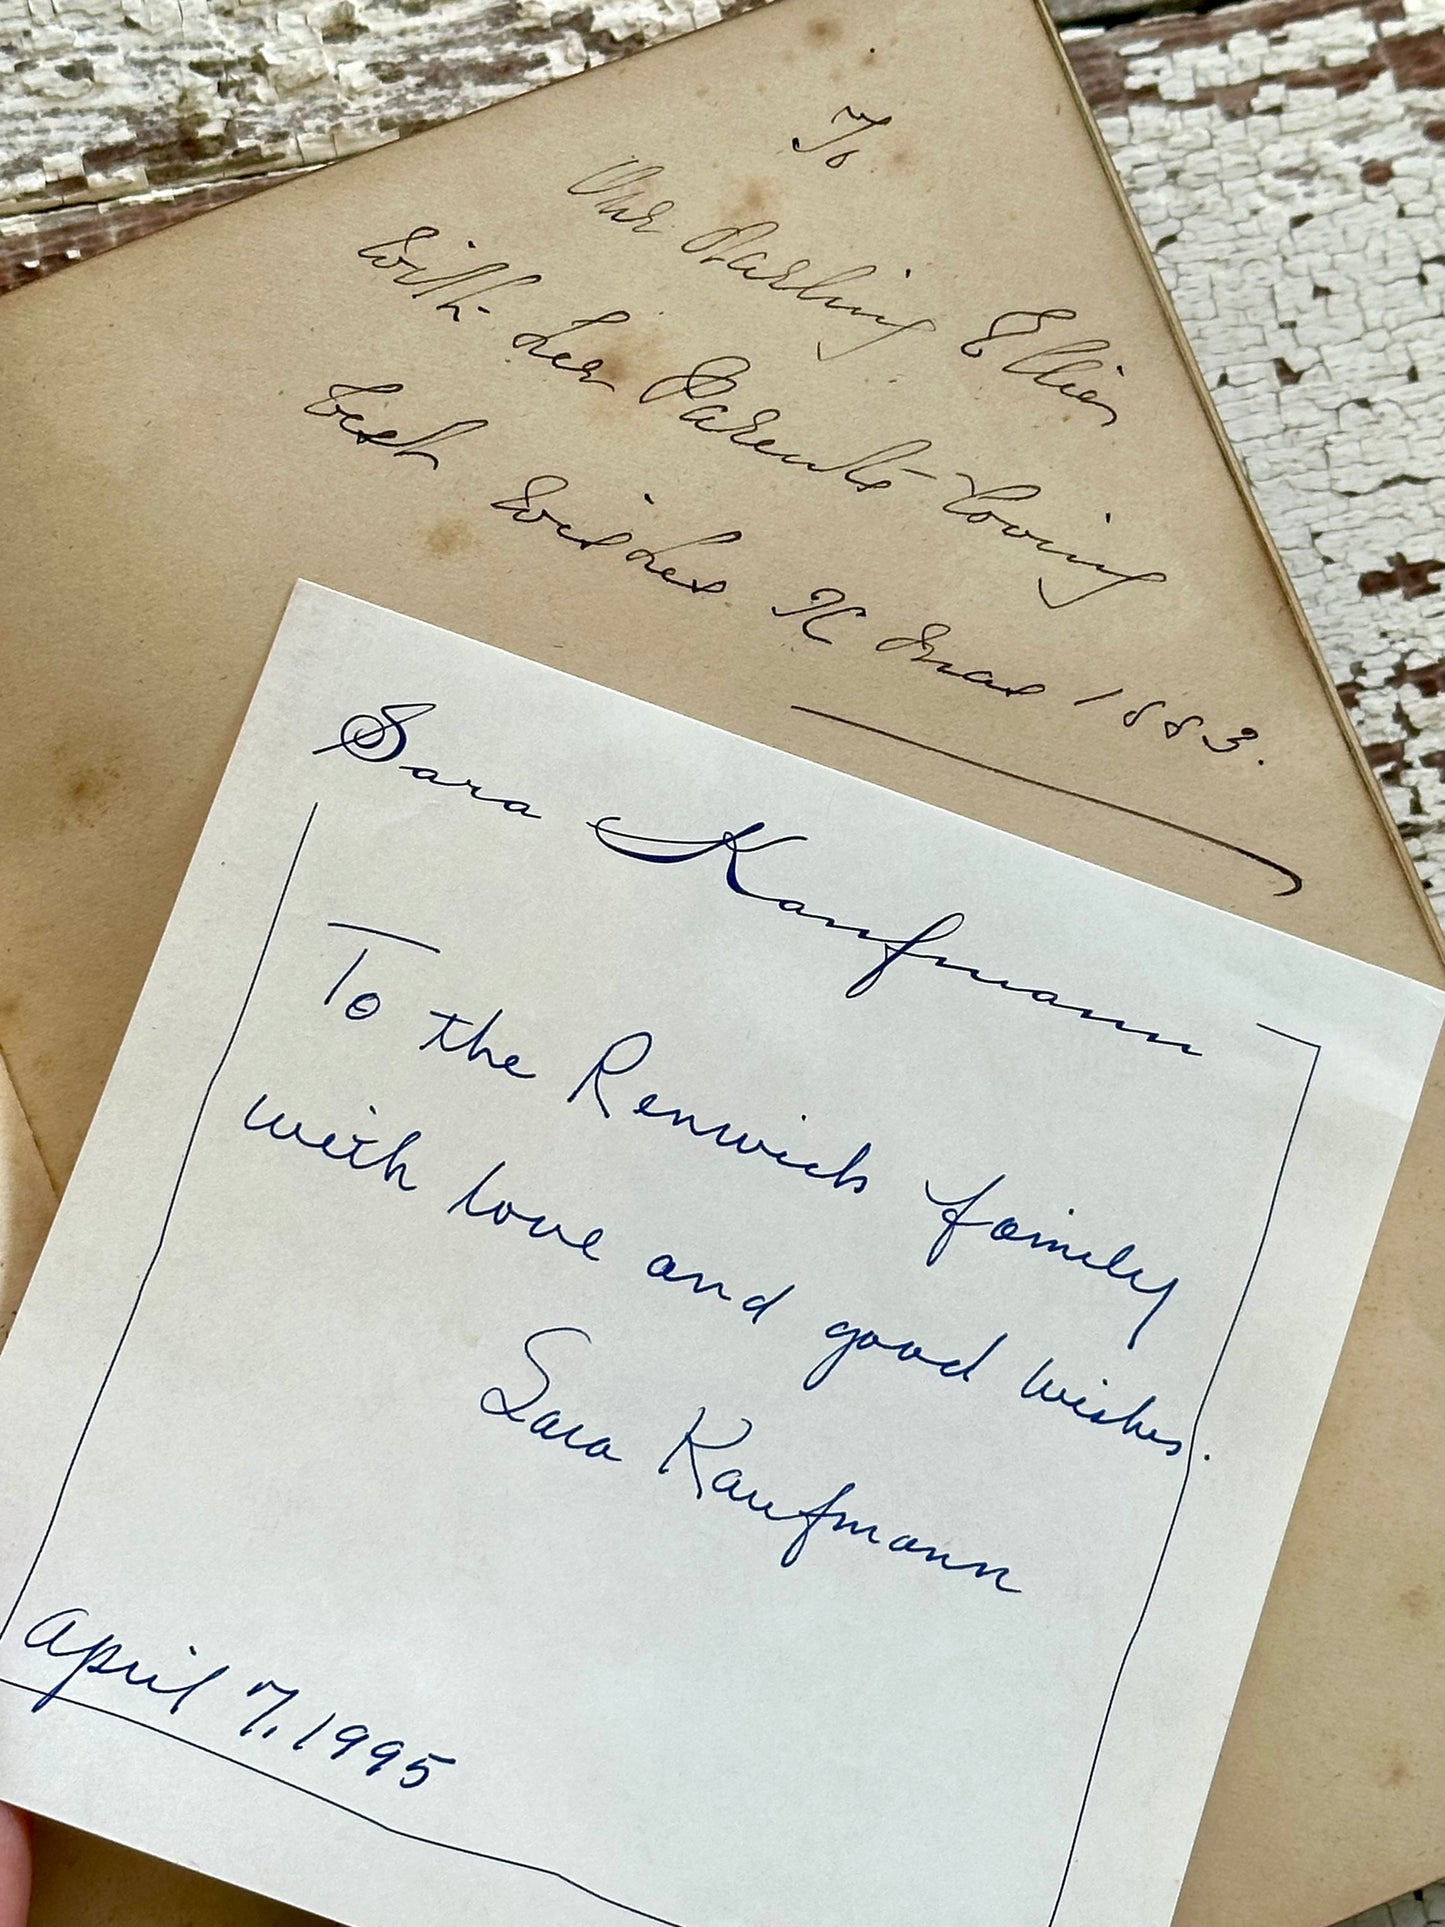 To
Our Darling Ellie
With her Parents loving
best Wishes Xmas 1883.
Sara Kaufmann
To the Renwick family
with love and good wishes.
Sara Kaufmann
April 7, 1995